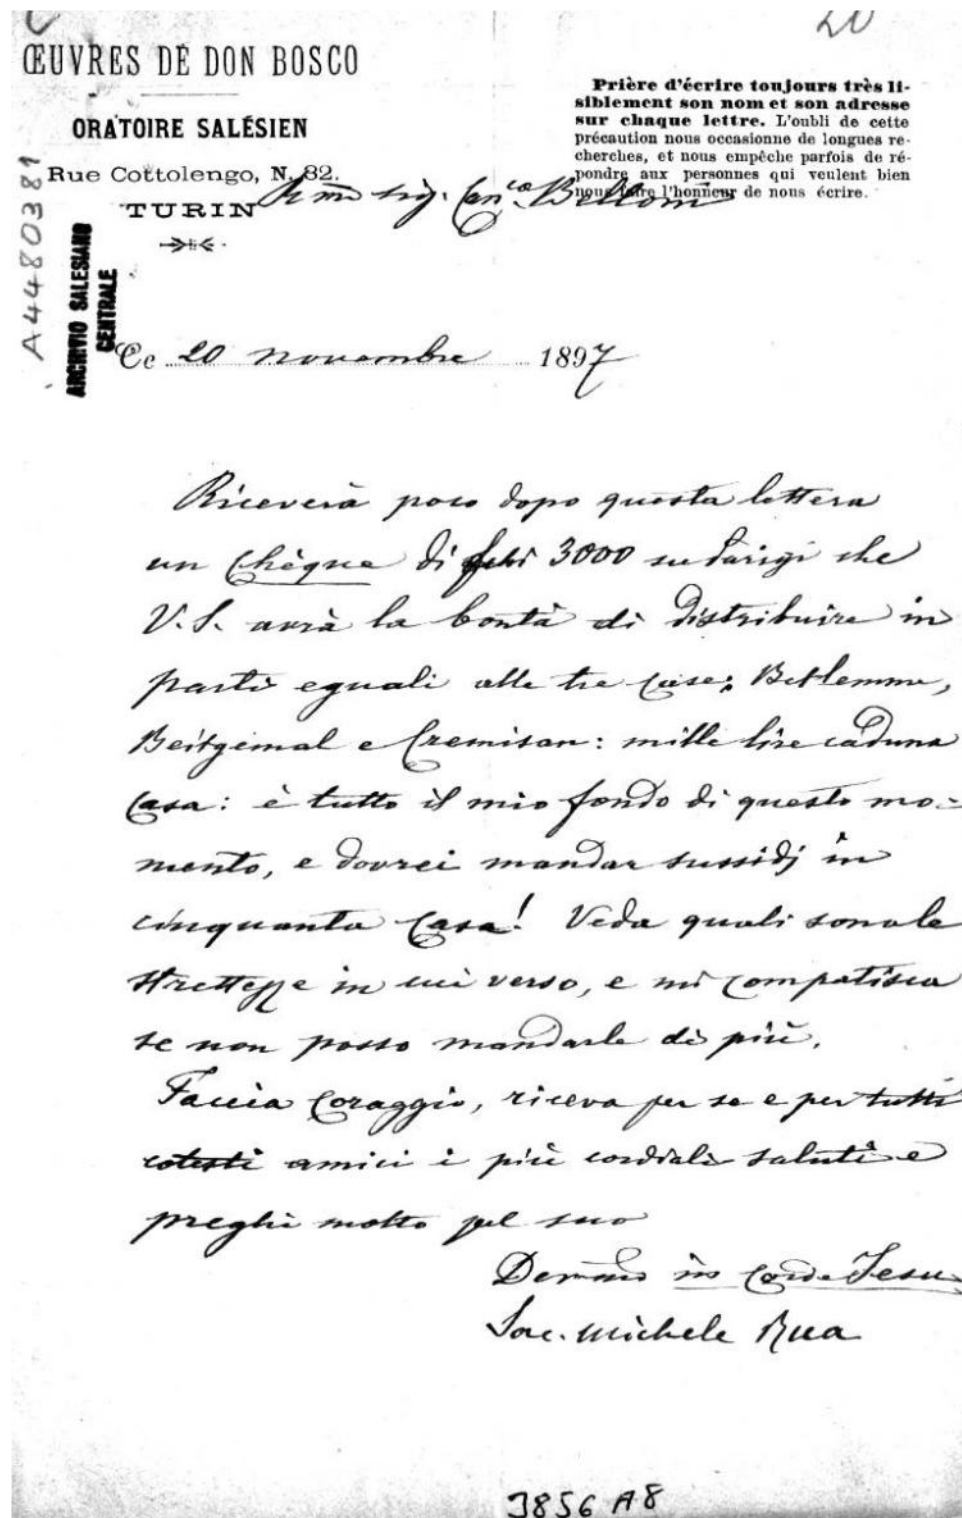 20
ŒUVRES DE DON BOSCO
ORATOIRE SALÉSIEN
Rue Cottolengo, N. 32.
TURIN
Prière d'écrire toujours très li-
siblement son nom et son adresse
sur chaque lettre. L'oubli de cette
précaution nous occasionne de longues re-
cherches, et nous empêche parfois de ré-
pondre aux personnes qui veulent bien
nous faire l'honneur de nous écrire.
A4480381
ARCHIVIO SALESIANO
CENTRALE
sig. Can.co Belloni
Ce 20 novembre 1897
Riceverà poco dopo questa lettera
un chèque di 3000 su Parigi che
V. S. avrà la bontà di distribuire in
parti eguali alle tre case: Betlemme,
Beitgemal e Cremisan: mille lire caduna
casa: è tutto il mio fondo di questo mo-
mento, e dovrei mandar sussidj in
cinquanta casa! Veda quali sono le
strettezze in cui verso, e mi compatisca
se non posso mandarle di più.
Faccia coraggio, riceva per se e per tutti
cotesti amici i più cordiali saluti e
preghi molto pel suo
in Corde Jesu
Sac. Michele Rua
3856 A8